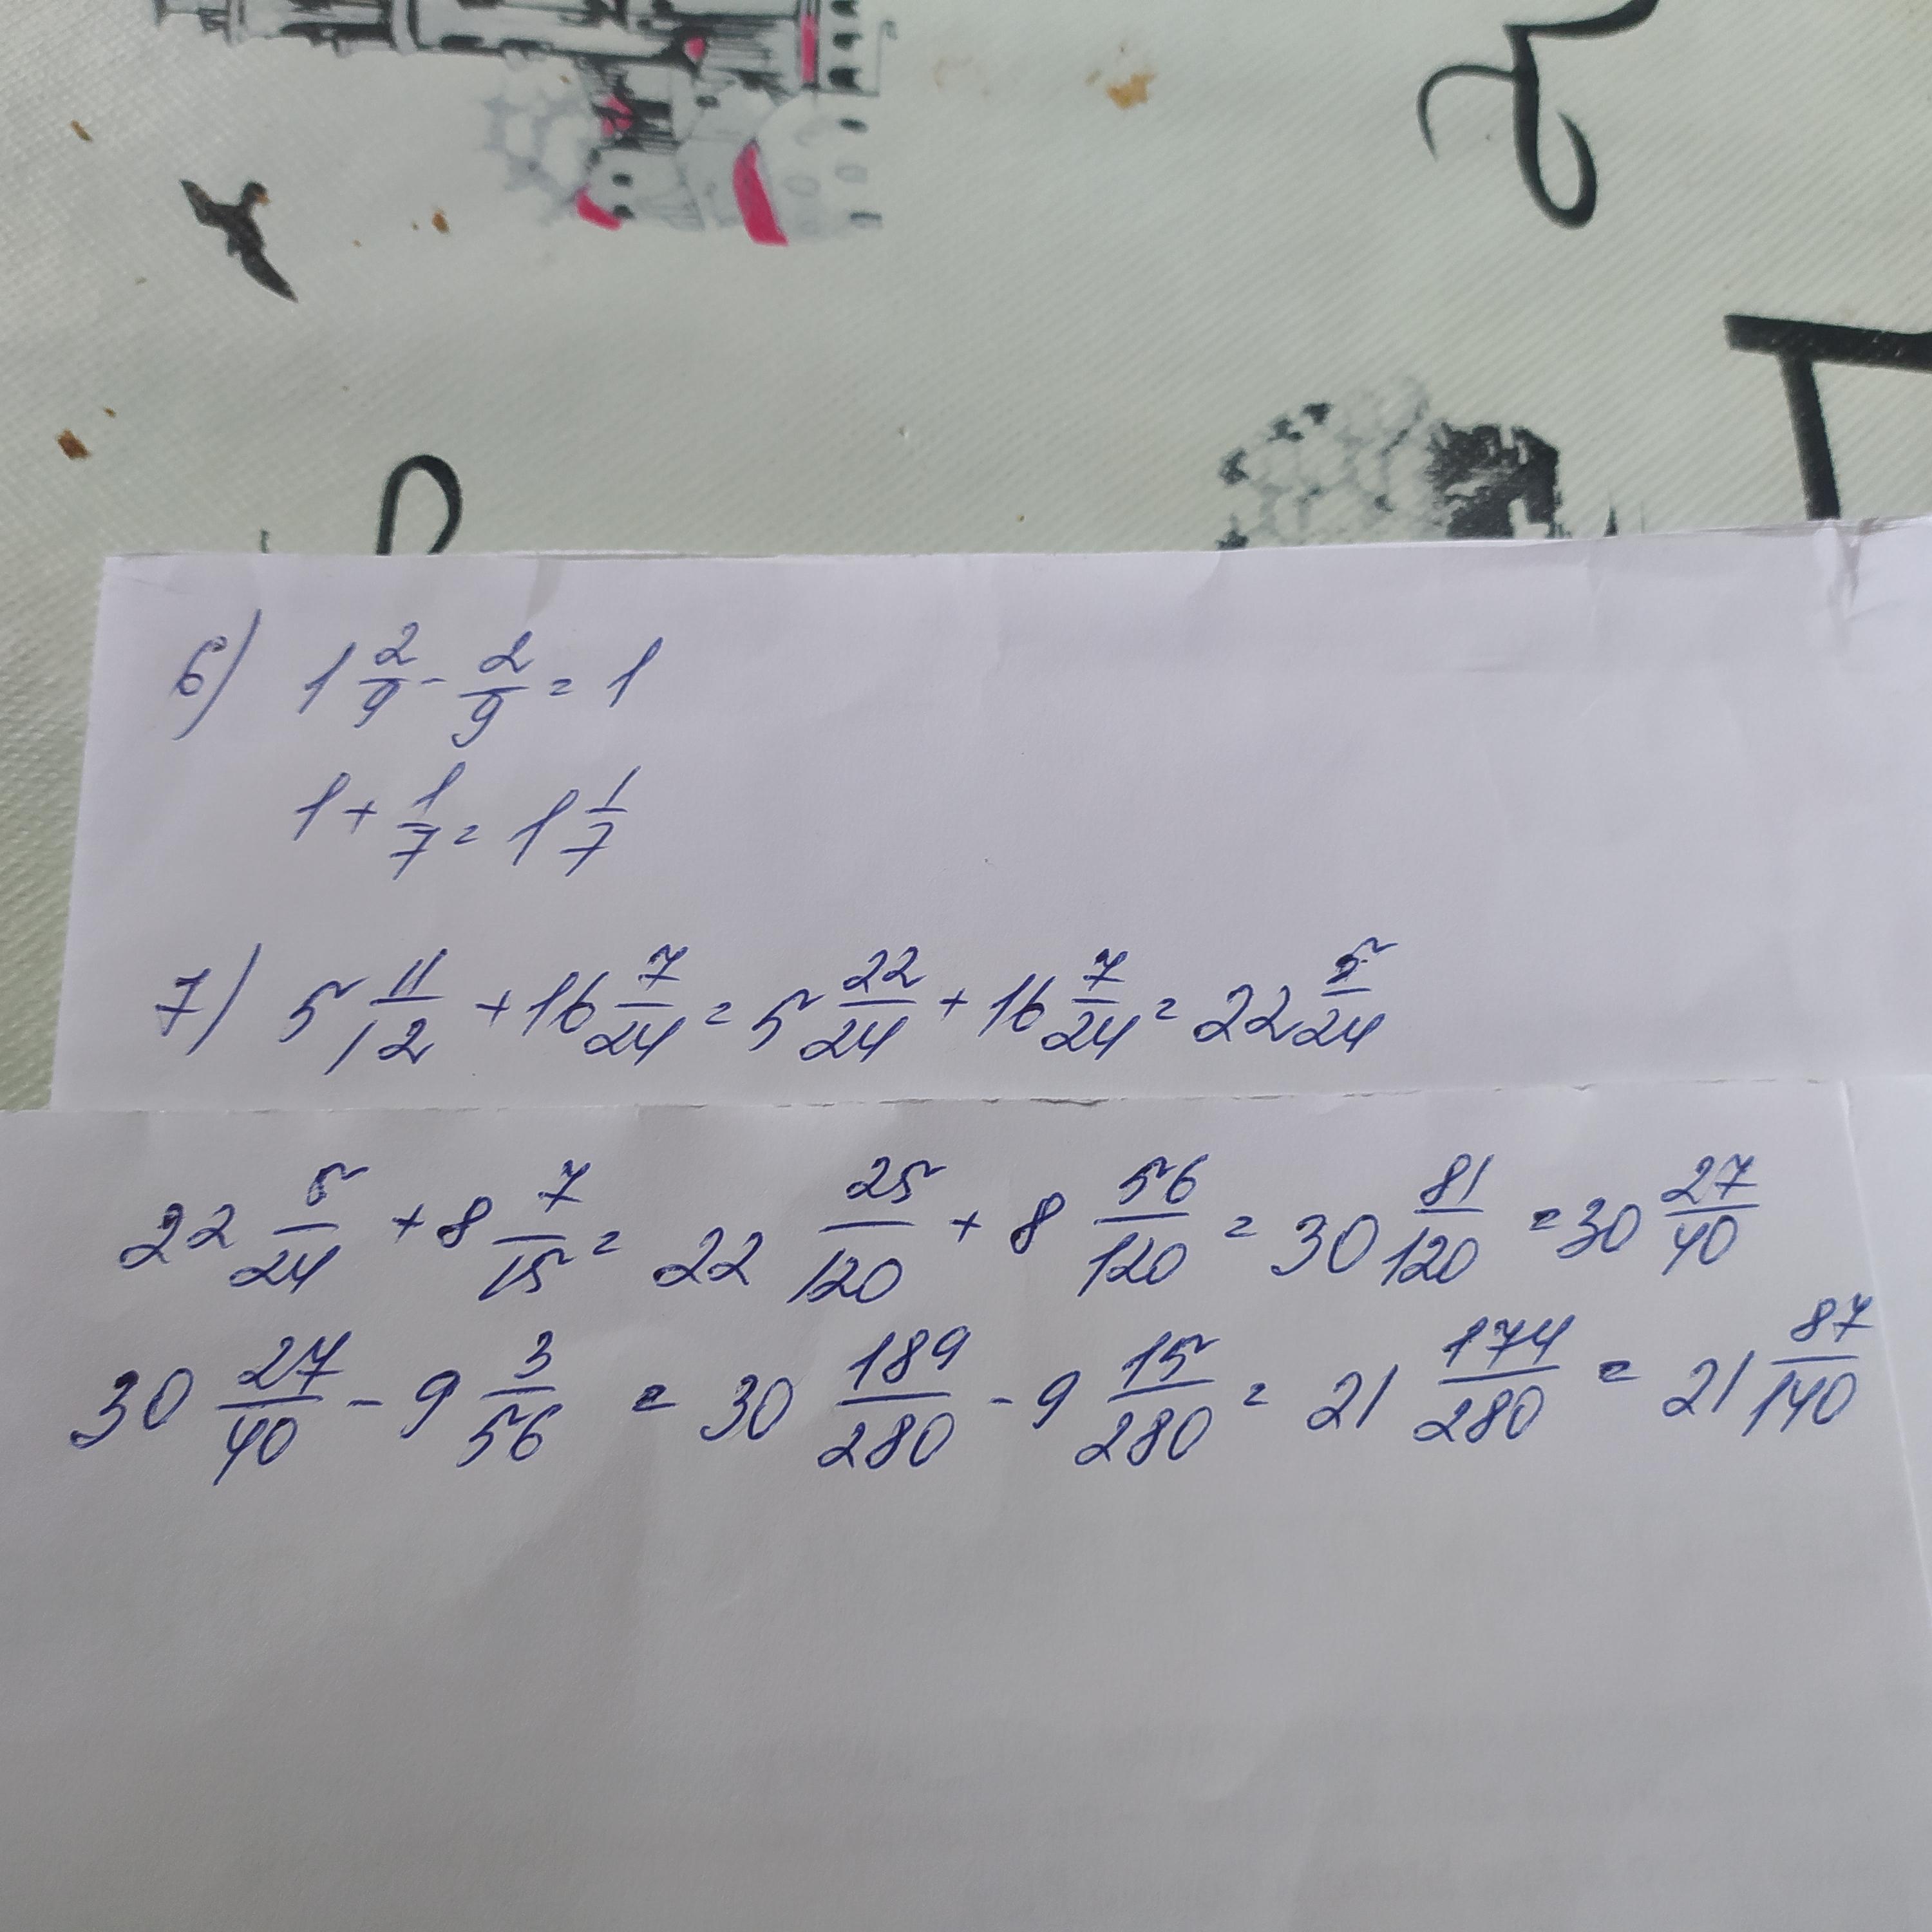 6) 1 2/9 - 2/9 = 1
1 + 1/7 = 1 1/7
7) 5 11/12 + 16 7/24 = 5 22/24 + 16 7/24 = 22 5/24
22 5/24 + 8 7/15 = 22 25/120 + 8 56/120 = 30 81/120 = 30 27/40
30 27/40 - 9 3/56 = 30 189/280 - 9 15/280 = 21 174/280 = 21 87/140